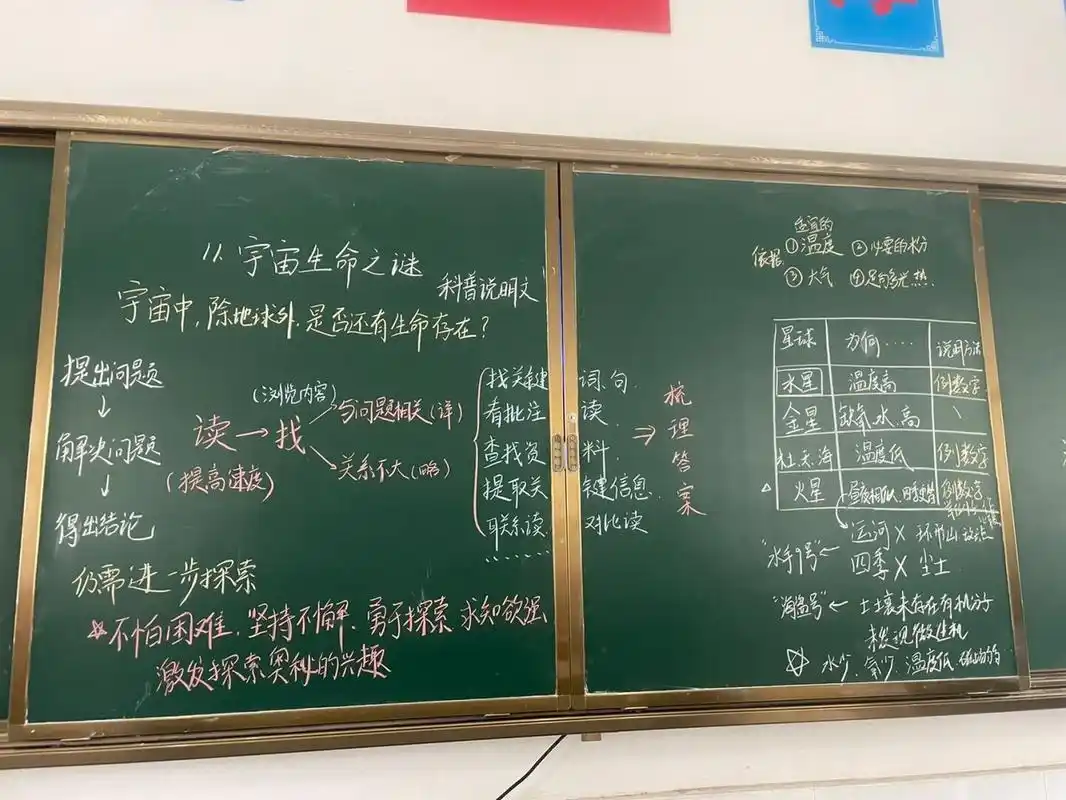 11. 宇宙生命之谜
科普说明文
宇宙中,除地球外,是否还有生命存在?
提出问题
↓
解决问题
↓
得出结论
读→找
(提高速度)
(浏览内容)
与问题相关(详)
关系不大(略)
找关键词、句
看批注读
查找资料
提取关键信息
联系读、对比读
......
⇒梳理答案
仍需进一步探索
不怕困难、坚持不懈、勇于探索 求知欲强
激发探索奥秘的兴趣
适宜的
依据:①温度 ②必要的水分
③大气 ④足够光热
星球 为何.... 说明方法
水星 温度高 例数字
金星 缺氧、水、高 \
杜、天、海 温度低 例数字
△ 火星 例数字
运河× 环形山
"水手9号"← 四季× 尘土
"海盗号"← 土壤未存在有机分子
未发现微生机
☆ 水少、氧少、温度低、